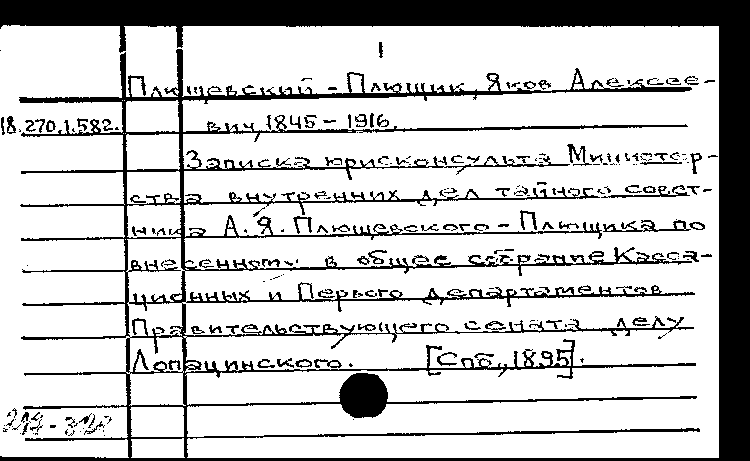 1
Плющевский - Плющик, Яков Алексее-
18.270.1.582. вич, 1845 - 1916.
Записка юрисконсульта Министер-
ства внутренних дел тайного совет-
ника А. Я. Плющевского - Плющика по
внесенному в общее собрание Касса-
ционных и Первого департаментов
Правительствующего сената делу
Лопацинского. [Спб., 1895].